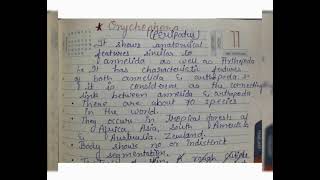 * Onychophora
(Peripatus)
• It shows anatomical
features similar to
annelida as well as Arthropoda
i.e It has characteristic features
of both annelida & arthropoda
& it is considered as the connecting
link between annelida & arthropoda
• There are about 70 species
in the world.
• They occurs in tropical forests of
Africa, Asia, South America
& Australia, Zealand.
• Body shows no or indistinct
segmentation.
11